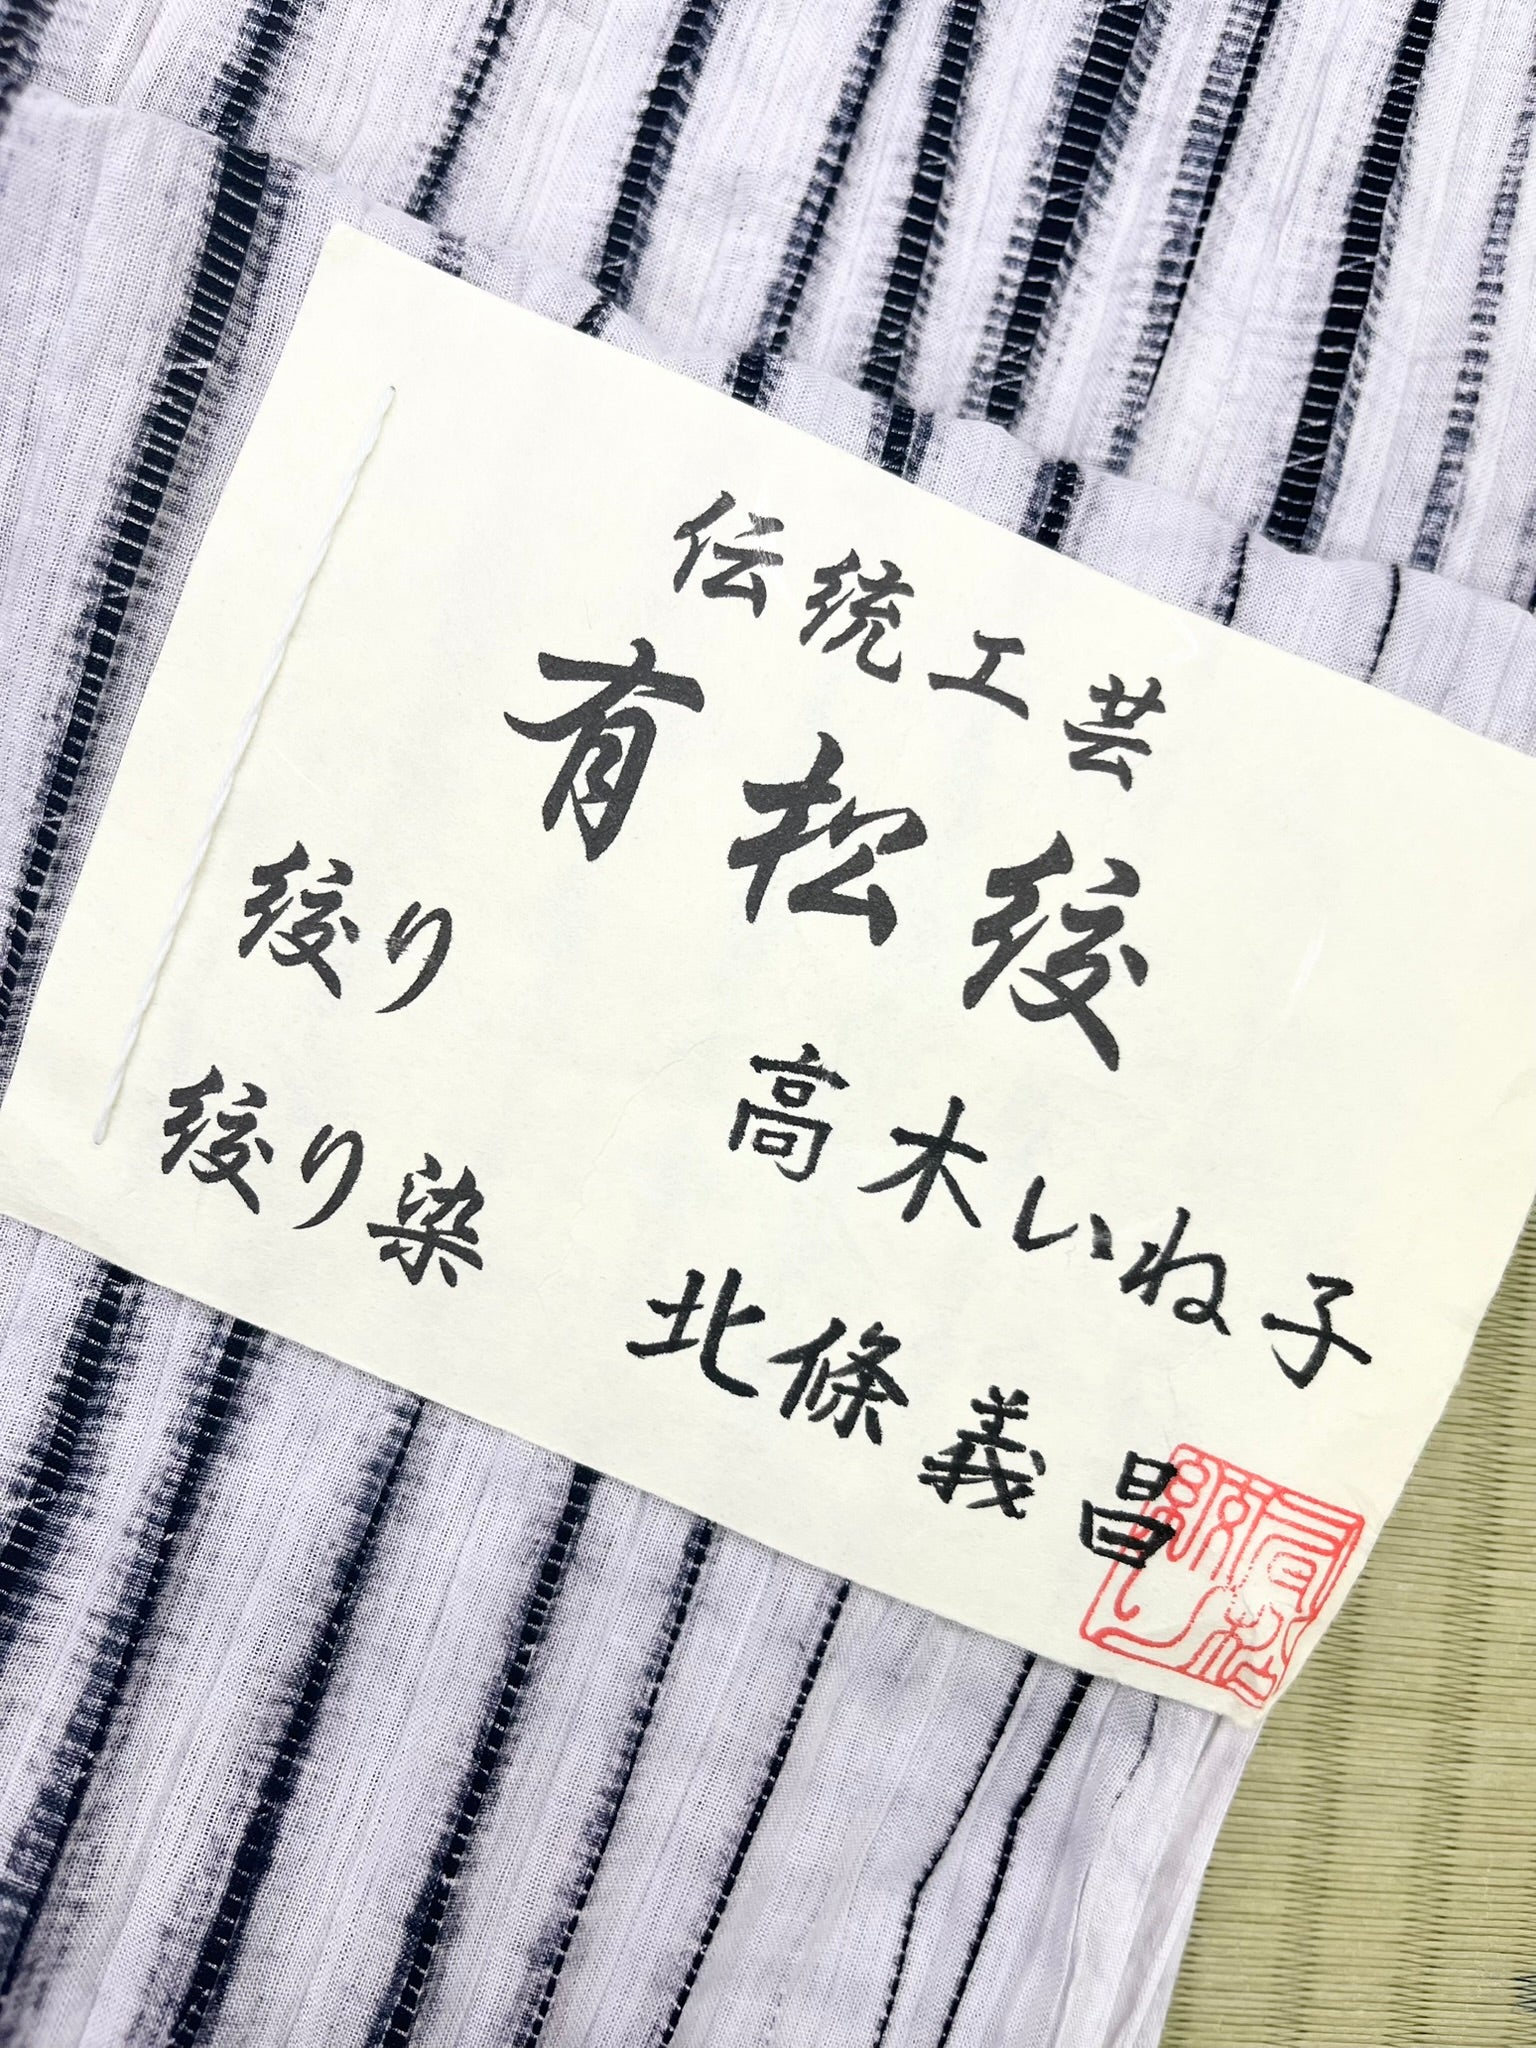 伝統工芸
有松絞
絞り 高木いね子
絞り染 北條義昌